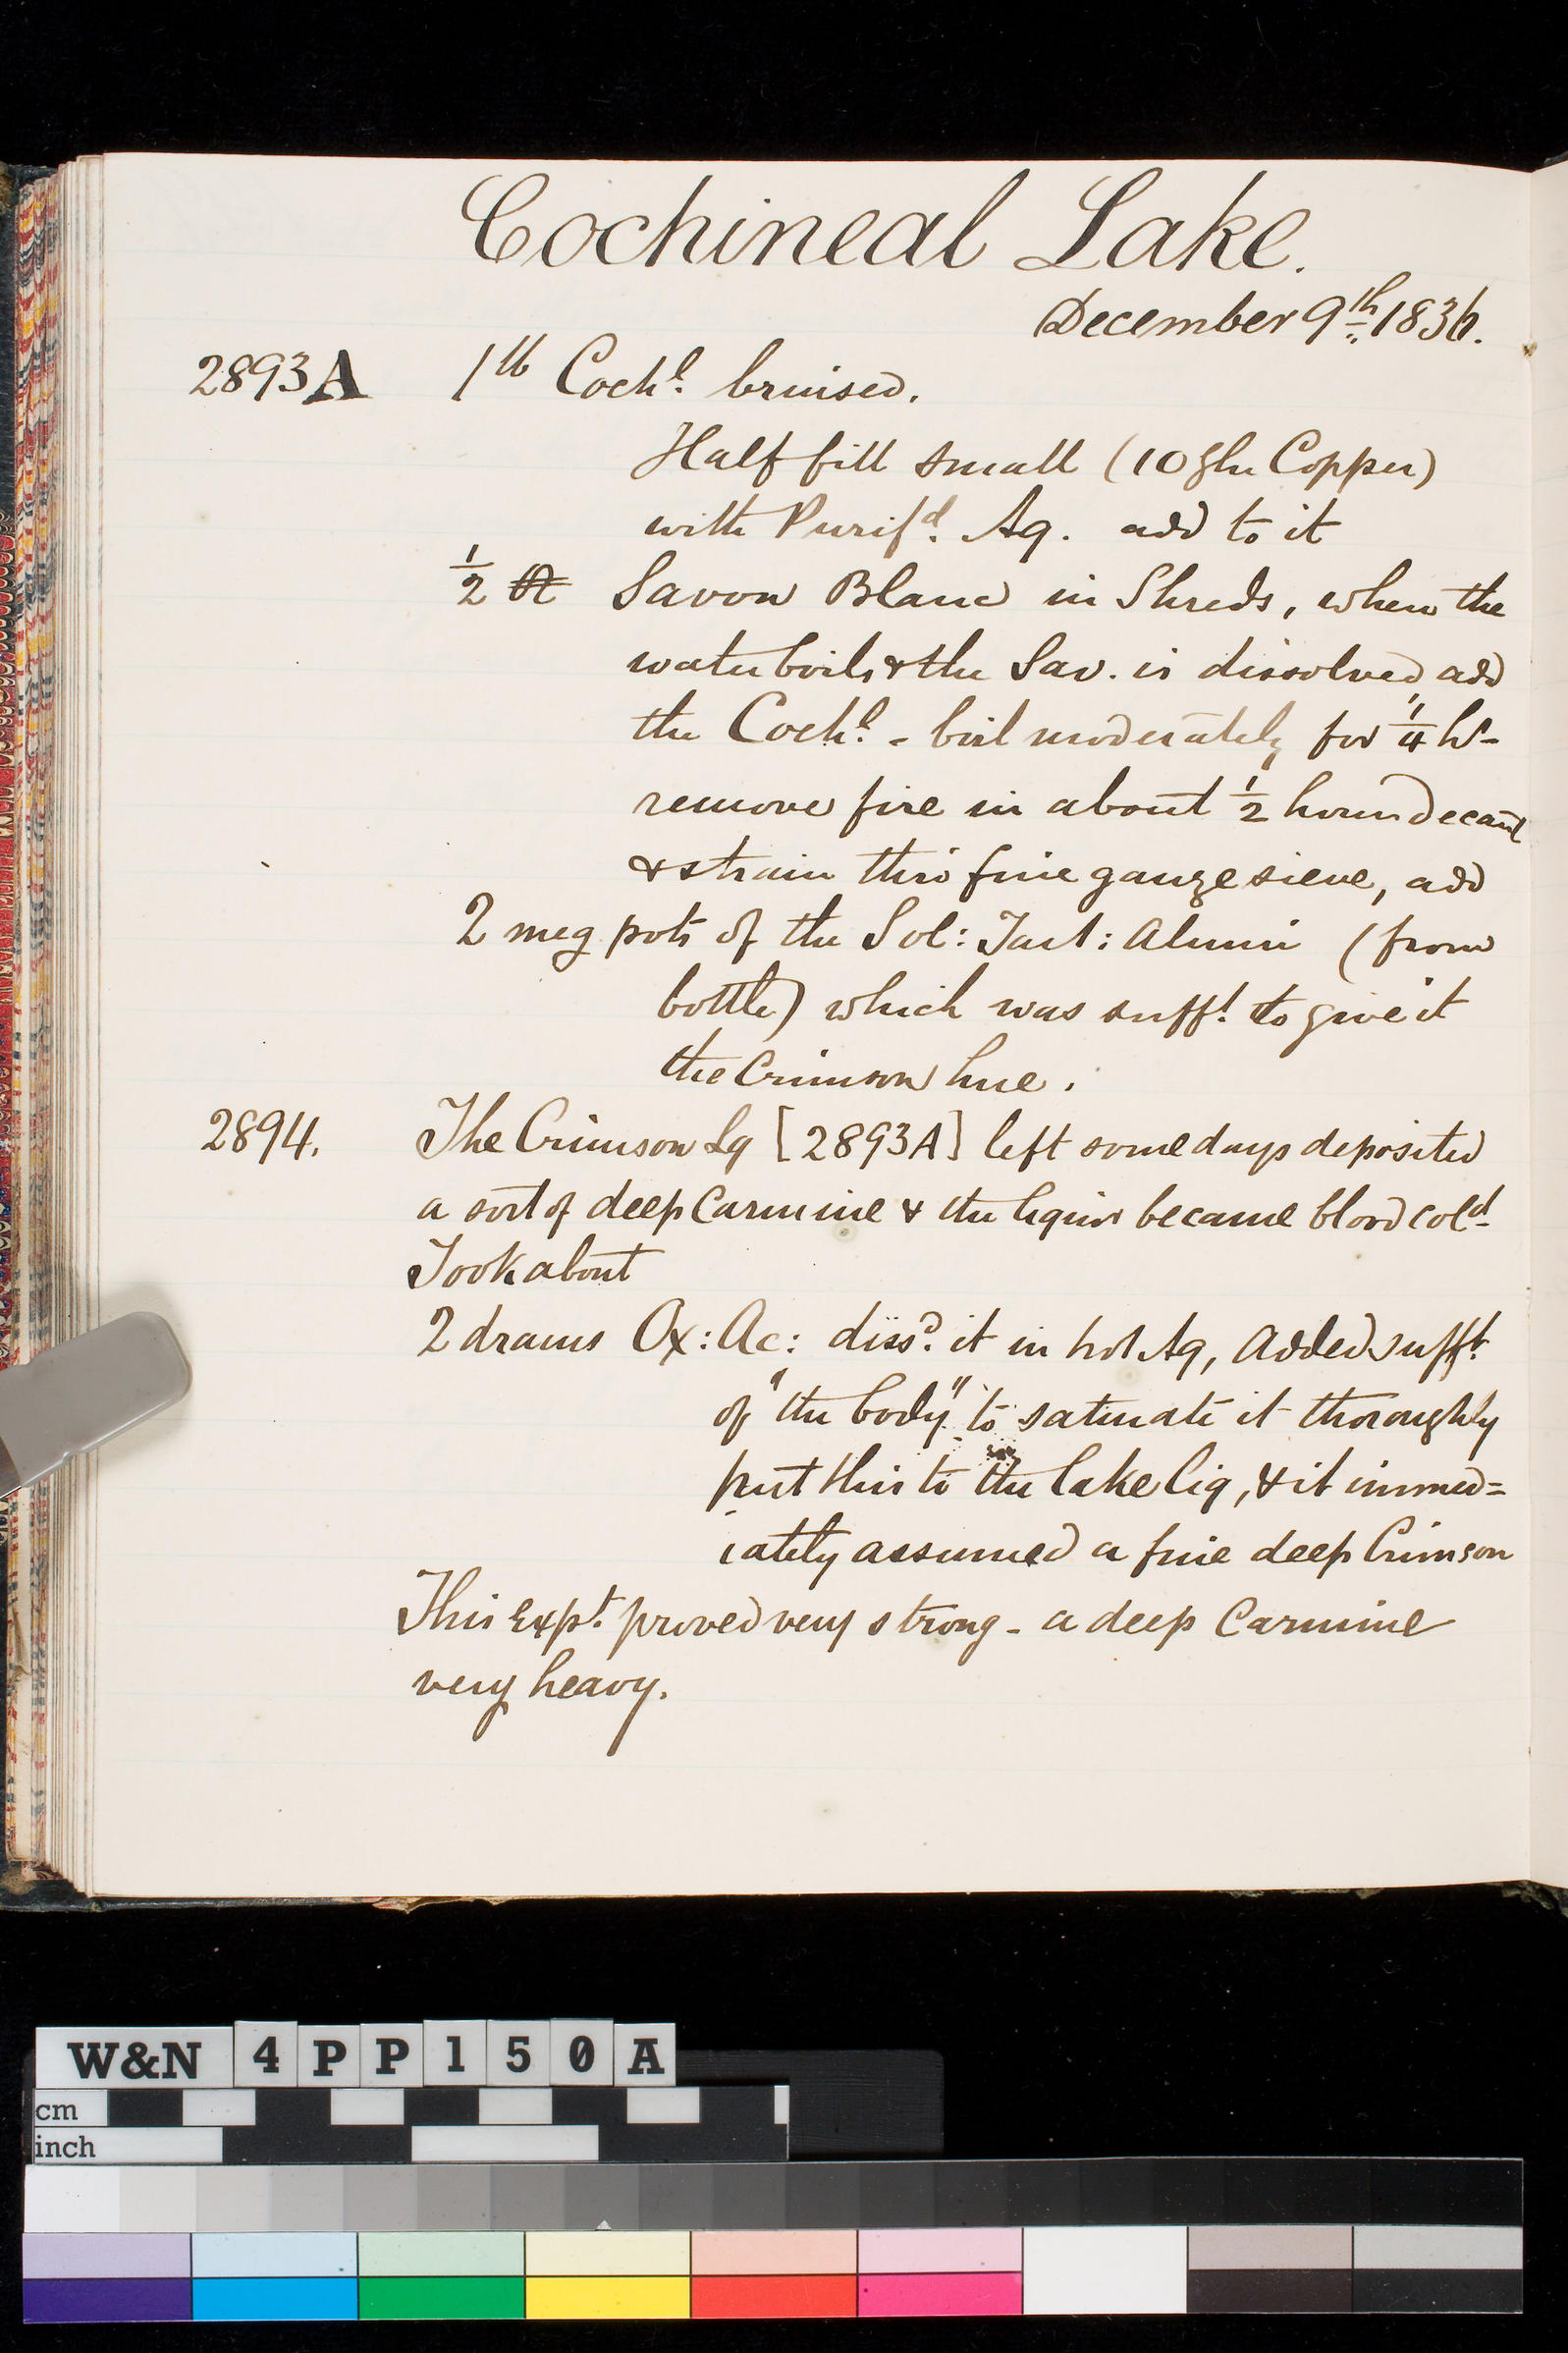 Cochineal Lake.
December 9th 1836.
2893A 1 lb Cochl. bruised.
Half fill small (10 gln Copper)
with Purifd. Aq. add to it
1/2 ℔ Savon Blanc in Shreds, when the
water boils & the Sav. is dissolved, add
the Cochl. - boil moderately for 1/4 hr-
remove fire in about 1/2 hour decant
& strain thro' fine gauze sieve, add
2 meg pots of the Sol: Tart: Alumi (from
bottle) which was sufft. to give it
the Crimson hue.
2894. The Crimson Lq [2893A] left some days deposited
a sort of deep Carmine & the liquor became blood cold-
Took about
2 drams Ox: Ac: dissd. it in hot Aq, Added sufft.
of "the body" to saturate it thoroughly
put this to the lake liq, & it immed=
iately assumed a fine deep Crimson
This Expt. proved very strong - a deep Carmine
very heavy.
W&N 4PP150A
cm
inch